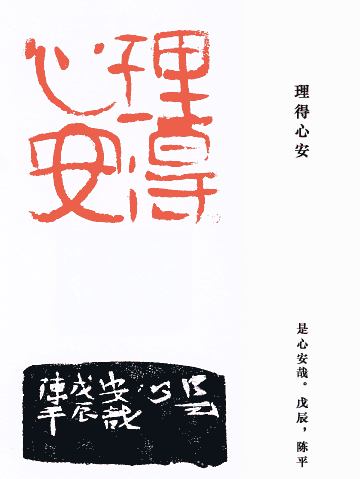 理得
心安
理得心安
是心
安哉
戊辰
陈平
是心安哉。戊辰，陈平